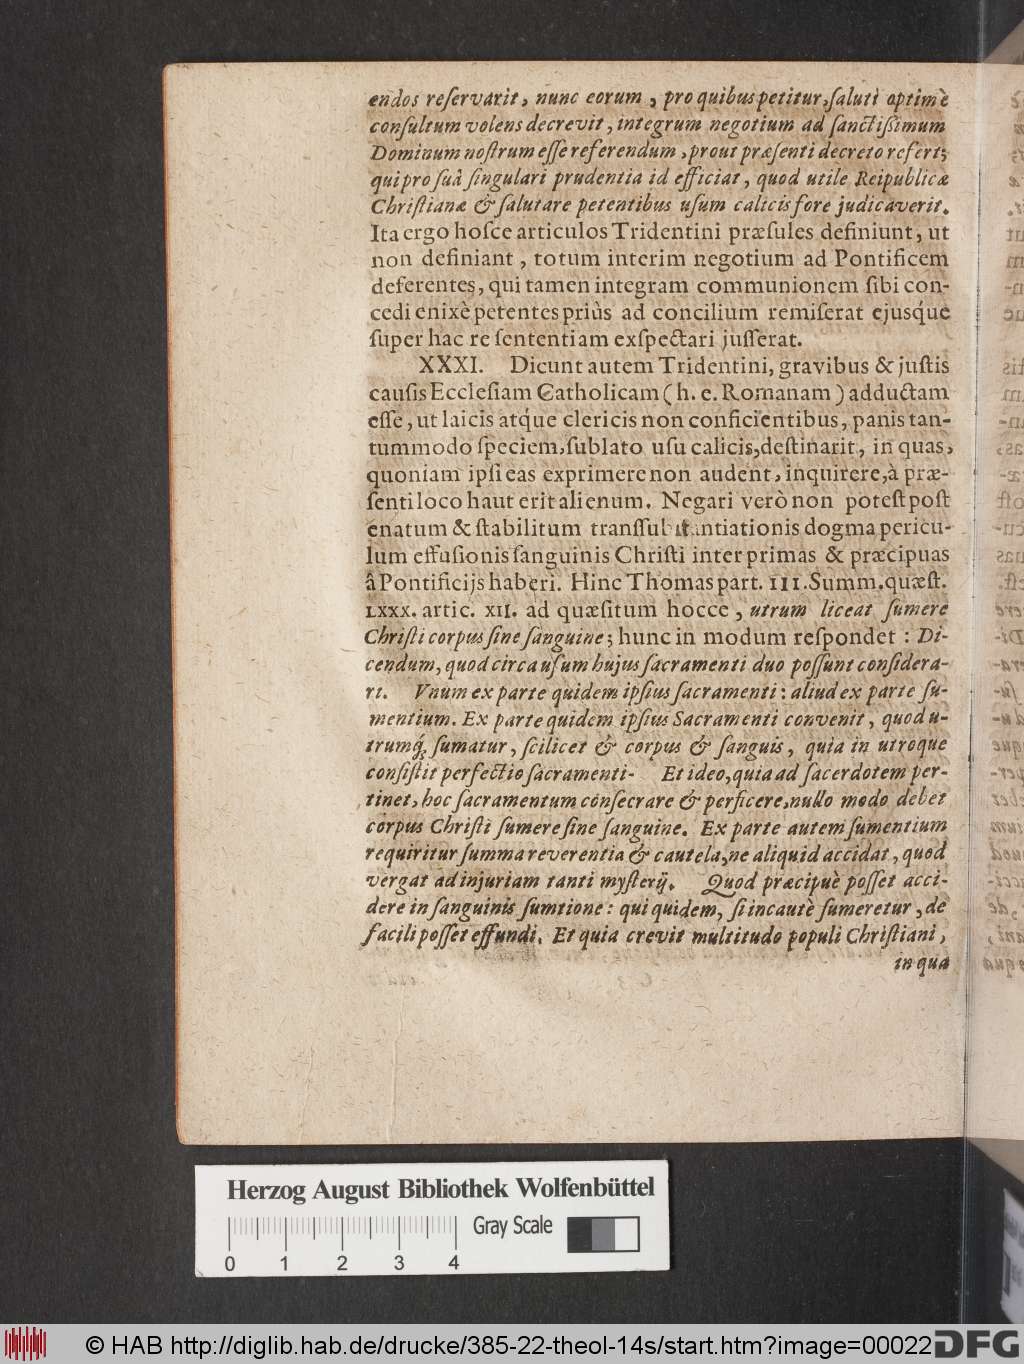 endos reſervarit, nunc eorum, pro quibus petitur, ſaluti optimè
conſultum volens decrevit, integrum negotium ad ſanctiſsimum
Dominum noſtrum eſſe referendum, prout præſenti decreto refert;
qui pro ſuâ ſingulari prudentia id efficiat, quod utile Reipublicæ
Chriſtianæ & ſalutare petentibus uſum calicis fore judicaverit.
Ita ergo hoſce articulos Tridentini præſules definiunt, ut
non definiant, totum interim negotium ad Pontificem
deferentes, qui tamen integram communionem ſibi con-
cedi enixè petentes priùs ad concilium remiſerat ejusq́ue
ſuper hac re ſententiam exſpectari juſſerat.
XXXI. Dicunt autem Tridentini, gravibus & juſtis
cauſis Eccleſiam Catholicam (h. e. Romanam) adductam
eſſe, ut laicis atq́ue clericis non conficientibus, panis tan-
tummodo ſpeciem, ſublato uſu calicis, deſtinarit, in quas,
quoniam ipſi eas exprimere non audent, inquirere, à præ-
ſenti loco haut erit alienum. Negari verò non poteſt poſt
enatum & ſtabilitum tranſſubſtantiationis dogma pericu-
lum effuſionis ſanguinis Chriſti inter primas & præcipuas
â Pontificijs haberi. Hinc Thomas part. III. Summ. quæſt.
LXXX. artic. XII. ad quæſitum hocce, utrum liceat ſumere
Chriſti corpus ſine ſanguine; hunc in modum reſpondet: Di-
cendum, quod circa uſum hujus ſacramenti duo poſſunt conſidera-
ri. Vnum ex parte quidem ipſius ſacramenti: aliud ex parte ſu-
mentium. Ex parte quidem ipſius Sacramenti convenit, quod u-
trumq́; ſumatur, ſcilicet & corpus & ſanguis, quia in utroque
conſiſtit perfectio ſacramenti- Et ideo, quia ad ſacerdotem per-
tinet, hoc ſacramentum conſecrare & perficere, nullo modo debet
corpus Chriſti ſumere ſine ſanguine. Ex parte autem ſumentium
requiritur ſumma reverentia & cautela, ne aliquid accidat, quod
vergat ad injuriam tanti myſterij. Quod præcipuè poſſet acci-
dere in ſanguinis ſumtione: qui quidem, ſi incautè ſumeretur, de
facili poſſet effundi. Et quia crevit multitudo populi Chriſtiani,
in qua
Herzog August Bibliothek Wolfenbüttel
Gray Scale
0 1 2 3 4
© HAB http://diglib.hab.de/drucke/385-22-theol-14s/start.htm?image=00022
DFG